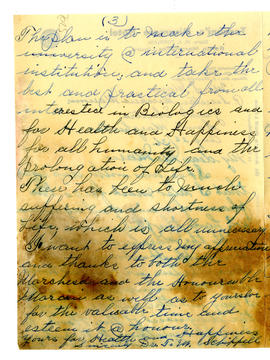 (3)
The plan is to make the
university @ international
institution, and take the
best and practical from all
interested in Biologics and
for Health and Happiness,
for all humanity and the
prolongation of Life.
There has been to much
suffering and shortness of
Life, which is all unnecessary
I want to express my affirmation
and thanks to both the
Marchesa and the Honourable
Marconi as well as to yourself
for the valuable time and
esteem it @ honour,
yours for Health and Happiness
Sincerely Dr.